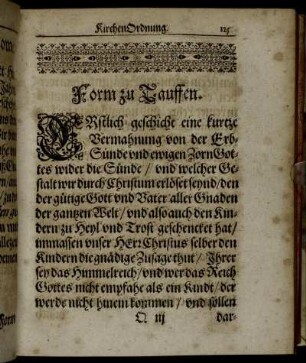 KirchenOrdnung. 115
Form zu Tauffen.
ERstlich geschicht eine kurtze
Vermahnung von der Erb-
Sünde vnd ewigen Zorn Got-
tes wider die Sünde / vnd welcher Ge-
stalt wir durch Christum erlöset seynd / den
der gütige Gott vnd Vater aller Gnaden
der gantzen Welt / vnd also auch den Kin-
dern zu Heyl vnd Trost geschencket hat /
immassen vnser HErr Christus selber den
Kindern die gnädige Zusage thut / Ihrer
sey das Himmelreich / vnd wer das Reich
Gottes nicht empfahe als ein Kindt / der
werde nicht hinein kommen / vnd sollen
Q iij dar-